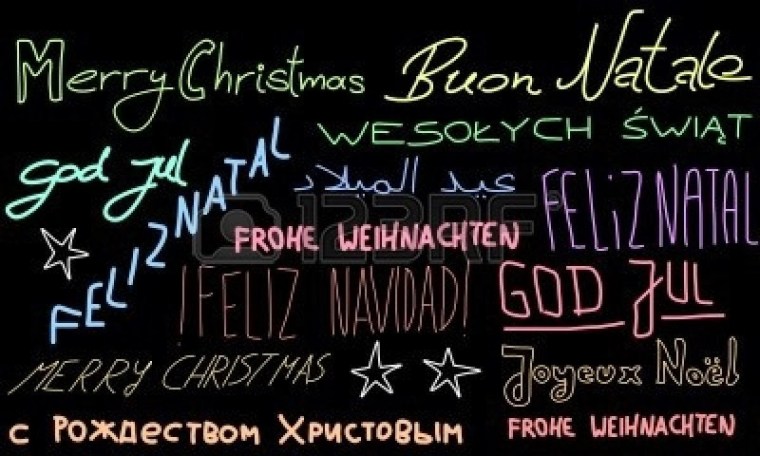 Merry Christmas
Buon Natale
WESOŁYCH ŚWIĄT
God Jul
FELIZ NATAL
عيد الميلاد
FELIZ NATAL
FROHE WEIHNACHTEN
¡FELIZ NAVIDAD!
GOD JUL
MERRY CHRISTMAS
Joyeux Noël
С РОЖДЕСТВОМ ХРИСТОВЫМ
FROHE WEIHNACHTEN
123RF